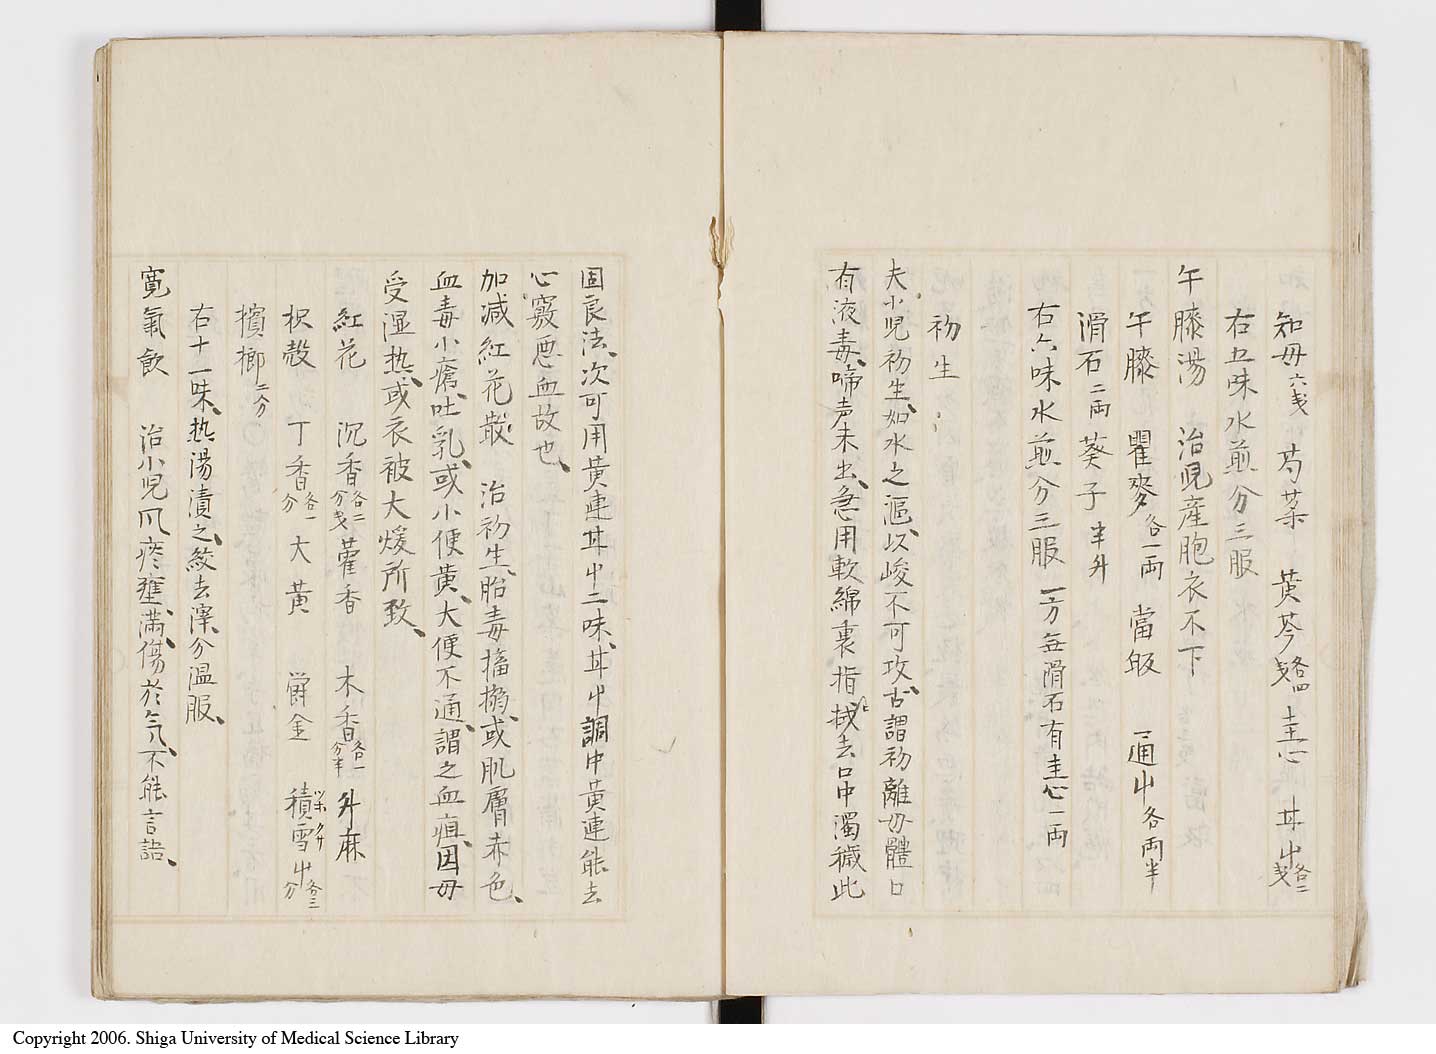 知母六戔 芍薬 黄芩各四戔 圭心 甘屮各二戔
右五味水煎分三服
午膝湯 治児産胞衣不下
午膝 瞿麥各一両 當皈 通屮各両半
滑石二両 葵子半升
右六味水煎分三服 一方無滑石有圭心一両
初生
夫小児初生如水之漚以峻不可攻古謂初離母體口
有液毒啼声未出急用軟綿裏指拭去口中濁穢此
固良法次可用黄連甘屮二味甘屮調中黄連能去
心竅悪血故也
加减紅花散 治初生胎毒搐搦或肌膚赤色
血毒小瘡吐乳或小便黄大便不通謂之血疽因母
受湿热或衣被大煖所致
紅花 沉香各二分戔 藿香 木香各一分半 升麻
枳殻 丁香各一分 大黄 欝金 積雪屮各三分
檳榔二分
右十一味热湯漬之絞去滓分温服
寛氣飲 治小児风痰壅満傷於気不能言語
Copyright 2006. Shiga University of Medical Science Library